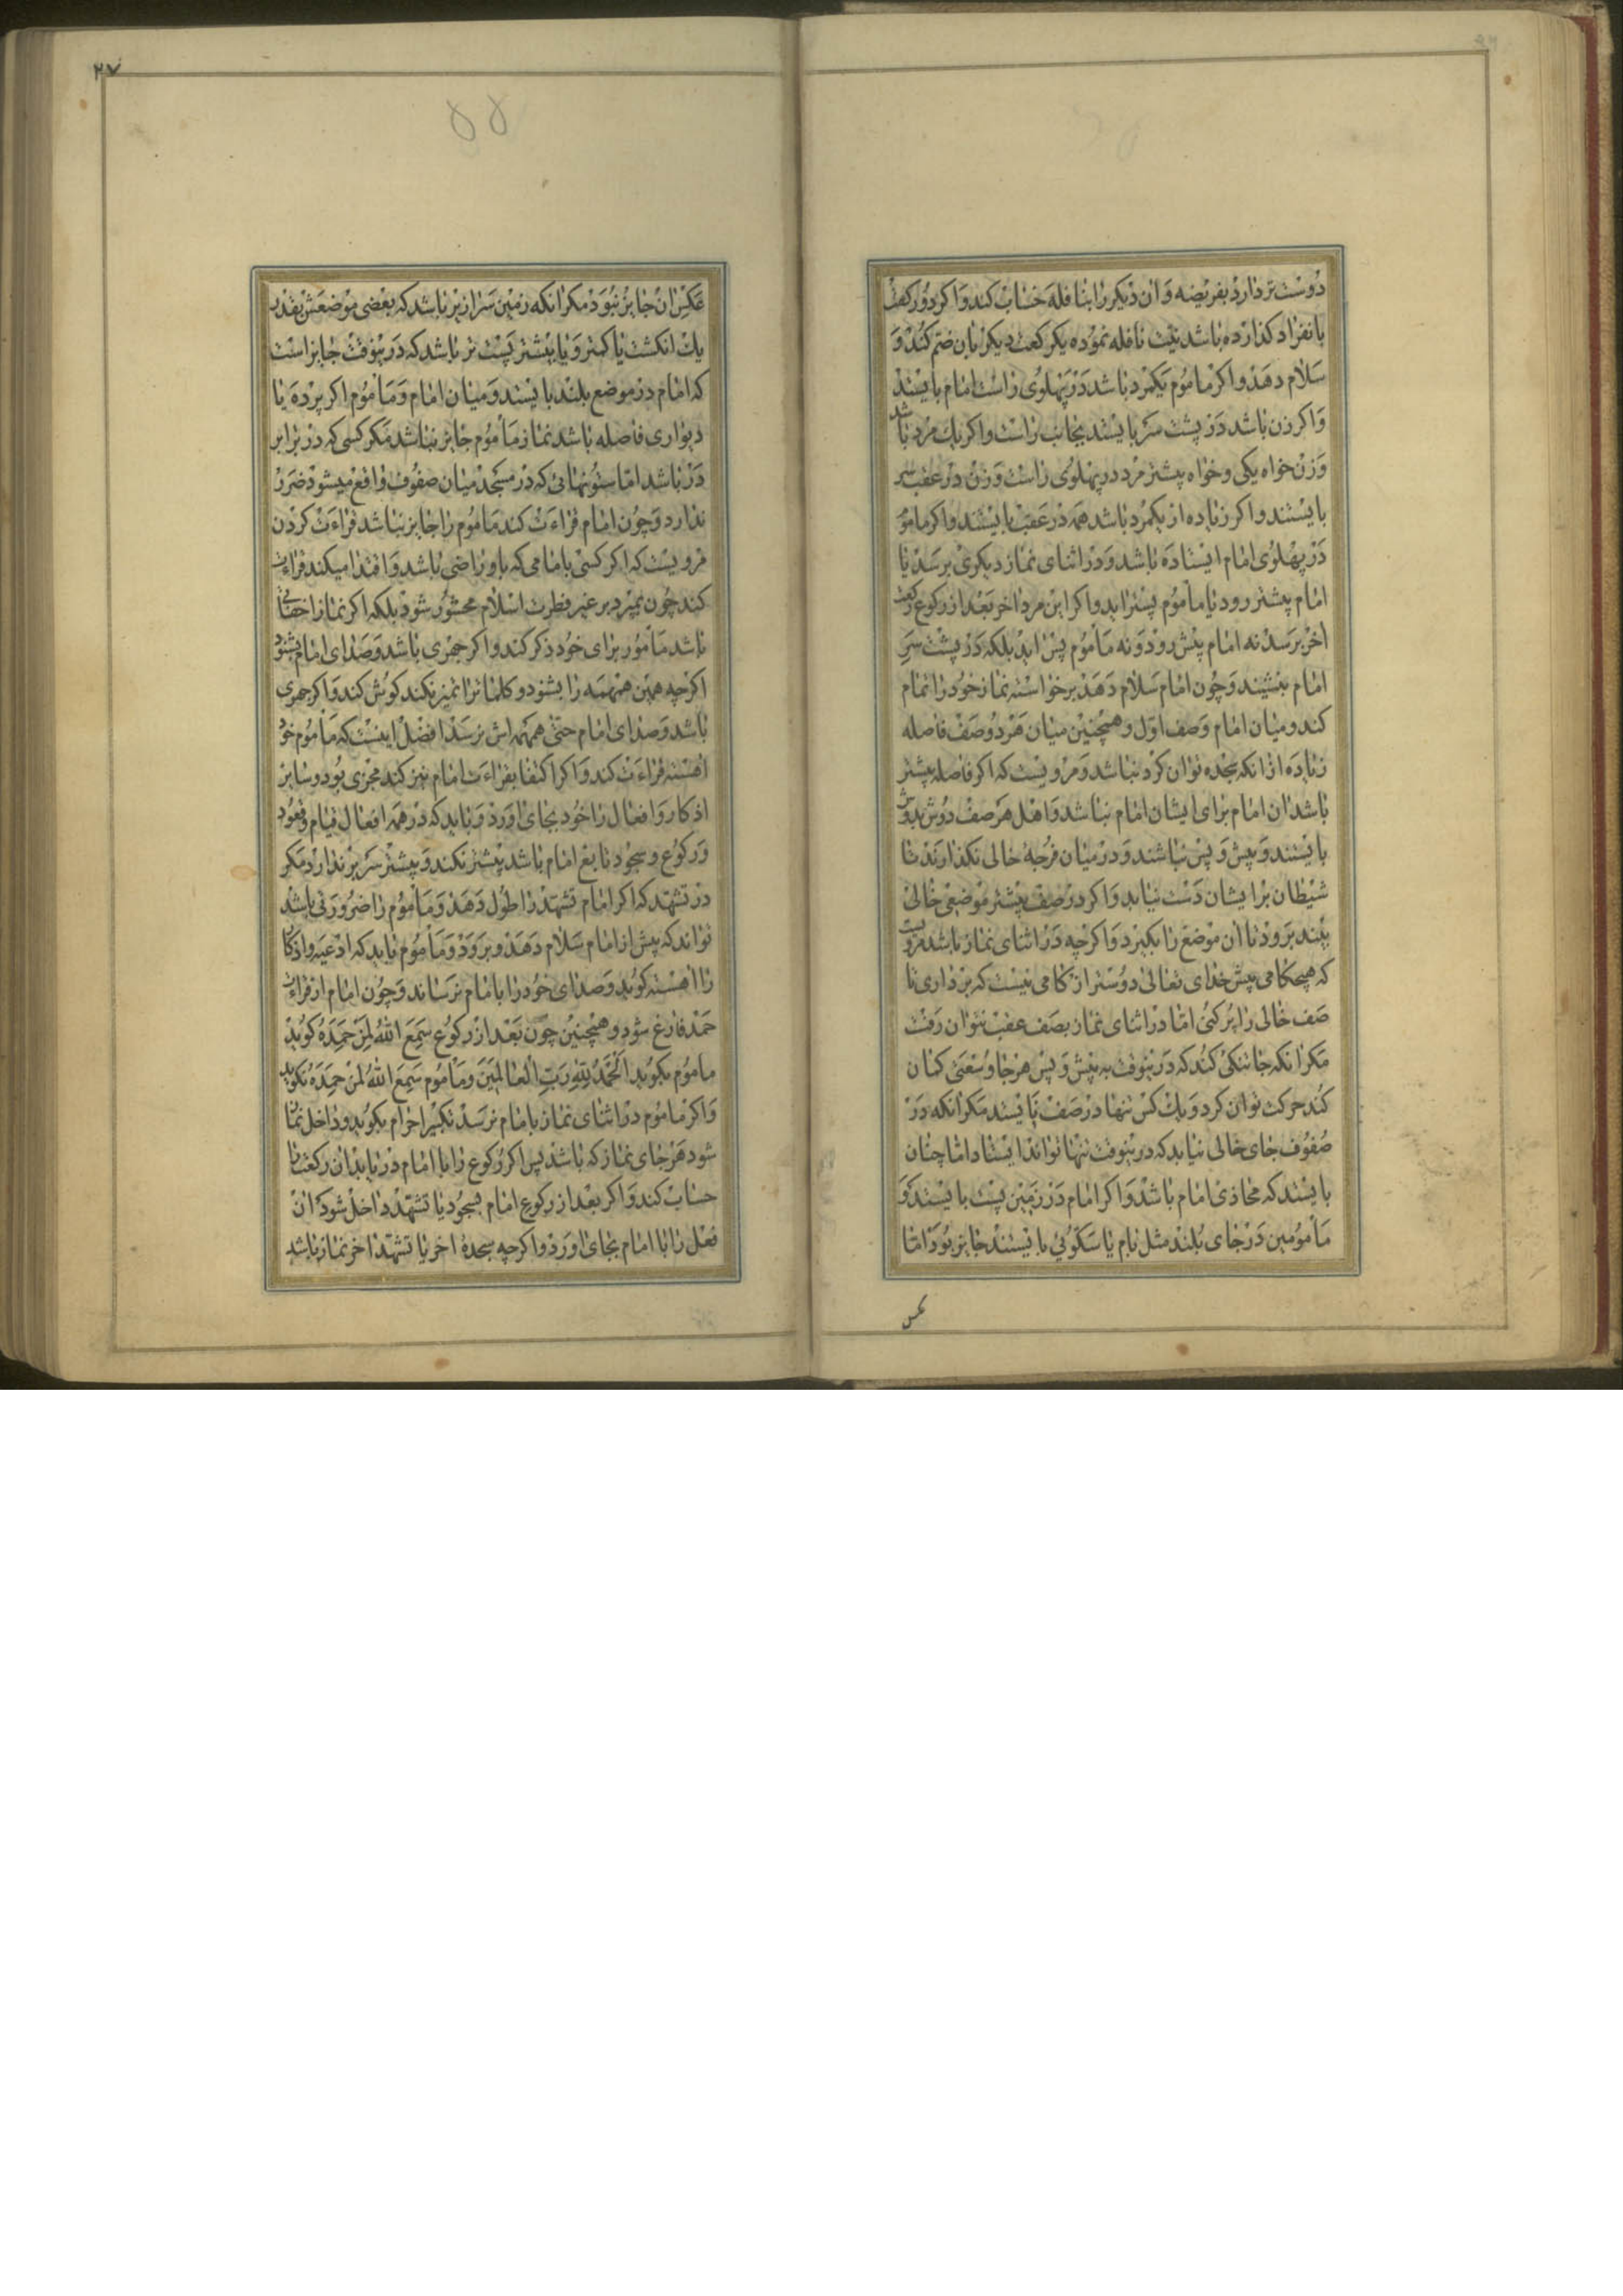 دوست تر دارد بفریضه و آن دیگر را بنافله حساب کند و اگر دو رکعت
بانفراد گذارده باشد نیت نافله نموده یکرکعت دیگر بآن ضم کند و
سلام دهد و اگر ماموم یکمرد باشد در پهلوی راست امام بایستد
و اگر زن باشد در پشت سر بایستد بجانب راست و اگر یک مرد باشد
و زن خواه یکی و خواه پیشتر مرد در پهلوی راست و زن در عقب سر
بایستند و اگر زیاده از یکمرد باشد همه در عقب بایستند و اگر مامو
در پهلوی امام ایستاده باشد و در اثنای نماز دیگری برسد یا
امام پیشتر رود یا ماموم پستر اید و اگر این مرد اخر بعد از رکوع رکعت
اخر برسد نه امام پیش رود و نه ماموم پس اید بلکه در پشت سر
امام بنشیند و چون امام سلام دهد برخواسته نماز خود را تمام
کند و میان امام و صف اول و همچنین میان هر دو صف فاصله
زیاده از انکه سجده توان کرد نباشد و مرویست که اگر فاصله بیشتر
باشد ان امام برای ایشان امام نباشد و اهل هر صف دوش بدوش
بایستند و پیش و پس نباشند و در میان فرجهٔ خالی نگذارند تا
شیطان بر ایشان دست نیابد و اگر در صف پیشتر موضعی خالی
بیند برود تا ان موضع را بگیرد و اگرچه در اثنای نماز باشد مرویست
که هیچ گامی پیش خدای تعالی دوستر از گامی نیست که برداری تا
صف خالی را پر کنی اما در اثنای نماز بصف عقب نتوان رفت
مگر انکه جا تنگی کند که درینوقت به پیش و پس هر جا وسعتی کمان
کند حرکت توان کرد و یک کس تنها در صف نایستد مگر انکه در
صفوف جای خالی نیابد که درینوقت تنها تواند ایستاد اما چنان
بایستد که محاذی امام باشد و اگر امام در زمین پست بایستد و
مامومین در جای بلند مثل بام یا سکوئی بایستند جایز بود اما
عکس
۲۷
۵۵
عکس ان جایز نبود مگر انکه زمین سرازیر باشد که بعضی موضعش بقدر
یک انکشت یا کمتر و یا بیشتر پست تر باشد که درینوقت جایز است
که امام در موضع بلند بایستد و میان امام و ماموم اگر پرده یا
دیواری فاصله باشد نماز ماموم جایز نباشد مگر کسی که در برابر
در باشد اما ستونهائی که در مسجد میان صفوف واقع میشود ضرر
ندارد و چون امام قراءت کند ماموم را جایز نباشد قراءت کردن
مرویست که اگر کسی بامامی که باو راضی باشد و اقتدا میکند قراءت
کند چون بمیرد بر غیر فطرت اسلام محشور شود بلکه اگر نماز اخفاتی
باشد مامور برای خود ذکر کند و اگر جهری باشد و صدای امام بشنود
اگرچه همین همهمه را بشنود و کلمات را تمیز نکند گوش کند و اگر جهری
باشد و صدای امام حتی همهمه اش نرسد افضل اینست که ماموم خود
اهسته قراءت کند و اگر اکتفا بقراءت امام نیز کند مجزی بود و سایر
اذکار و افعال را خود بجای اورد و باید که در همه افعال قیام و قعود
و رکوع و سجود تابع امام باشد پیشتر نکند و پیشتر سر برندارد مگر
در تشهد که اگر امام تشهد را طول دهد و ماموم را ضرورتی باشد
تواند که پیش از امام سلام دهد و برود و ماموم باید که ادعیه و اذکار
را اهسته گوید و صدای خود را بامام نرساند و چون امام از قراءت
حمد فارغ شود و همچنین چون بعد از رکوع سمع الله لمن حمده گوید
ماموم بگوید الحمد لله رب العالمین و ماموم سمع الله لمن حمده نگوید
و اگر ماموم در اثنای نماز بامام برسد تکبیر احرام بگوید و داخل نماز
شود هر جای نماز که باشد پس اگر رکوع را با امام دریابد ان رکعت را
حساب کند و اگر بعد از رکوع امام بسجود یا تشهد داخل شود ان
فعل را با امام بجای اورد و اگرچه سجدهٔ اخر یا تشهد اخر نماز باشد